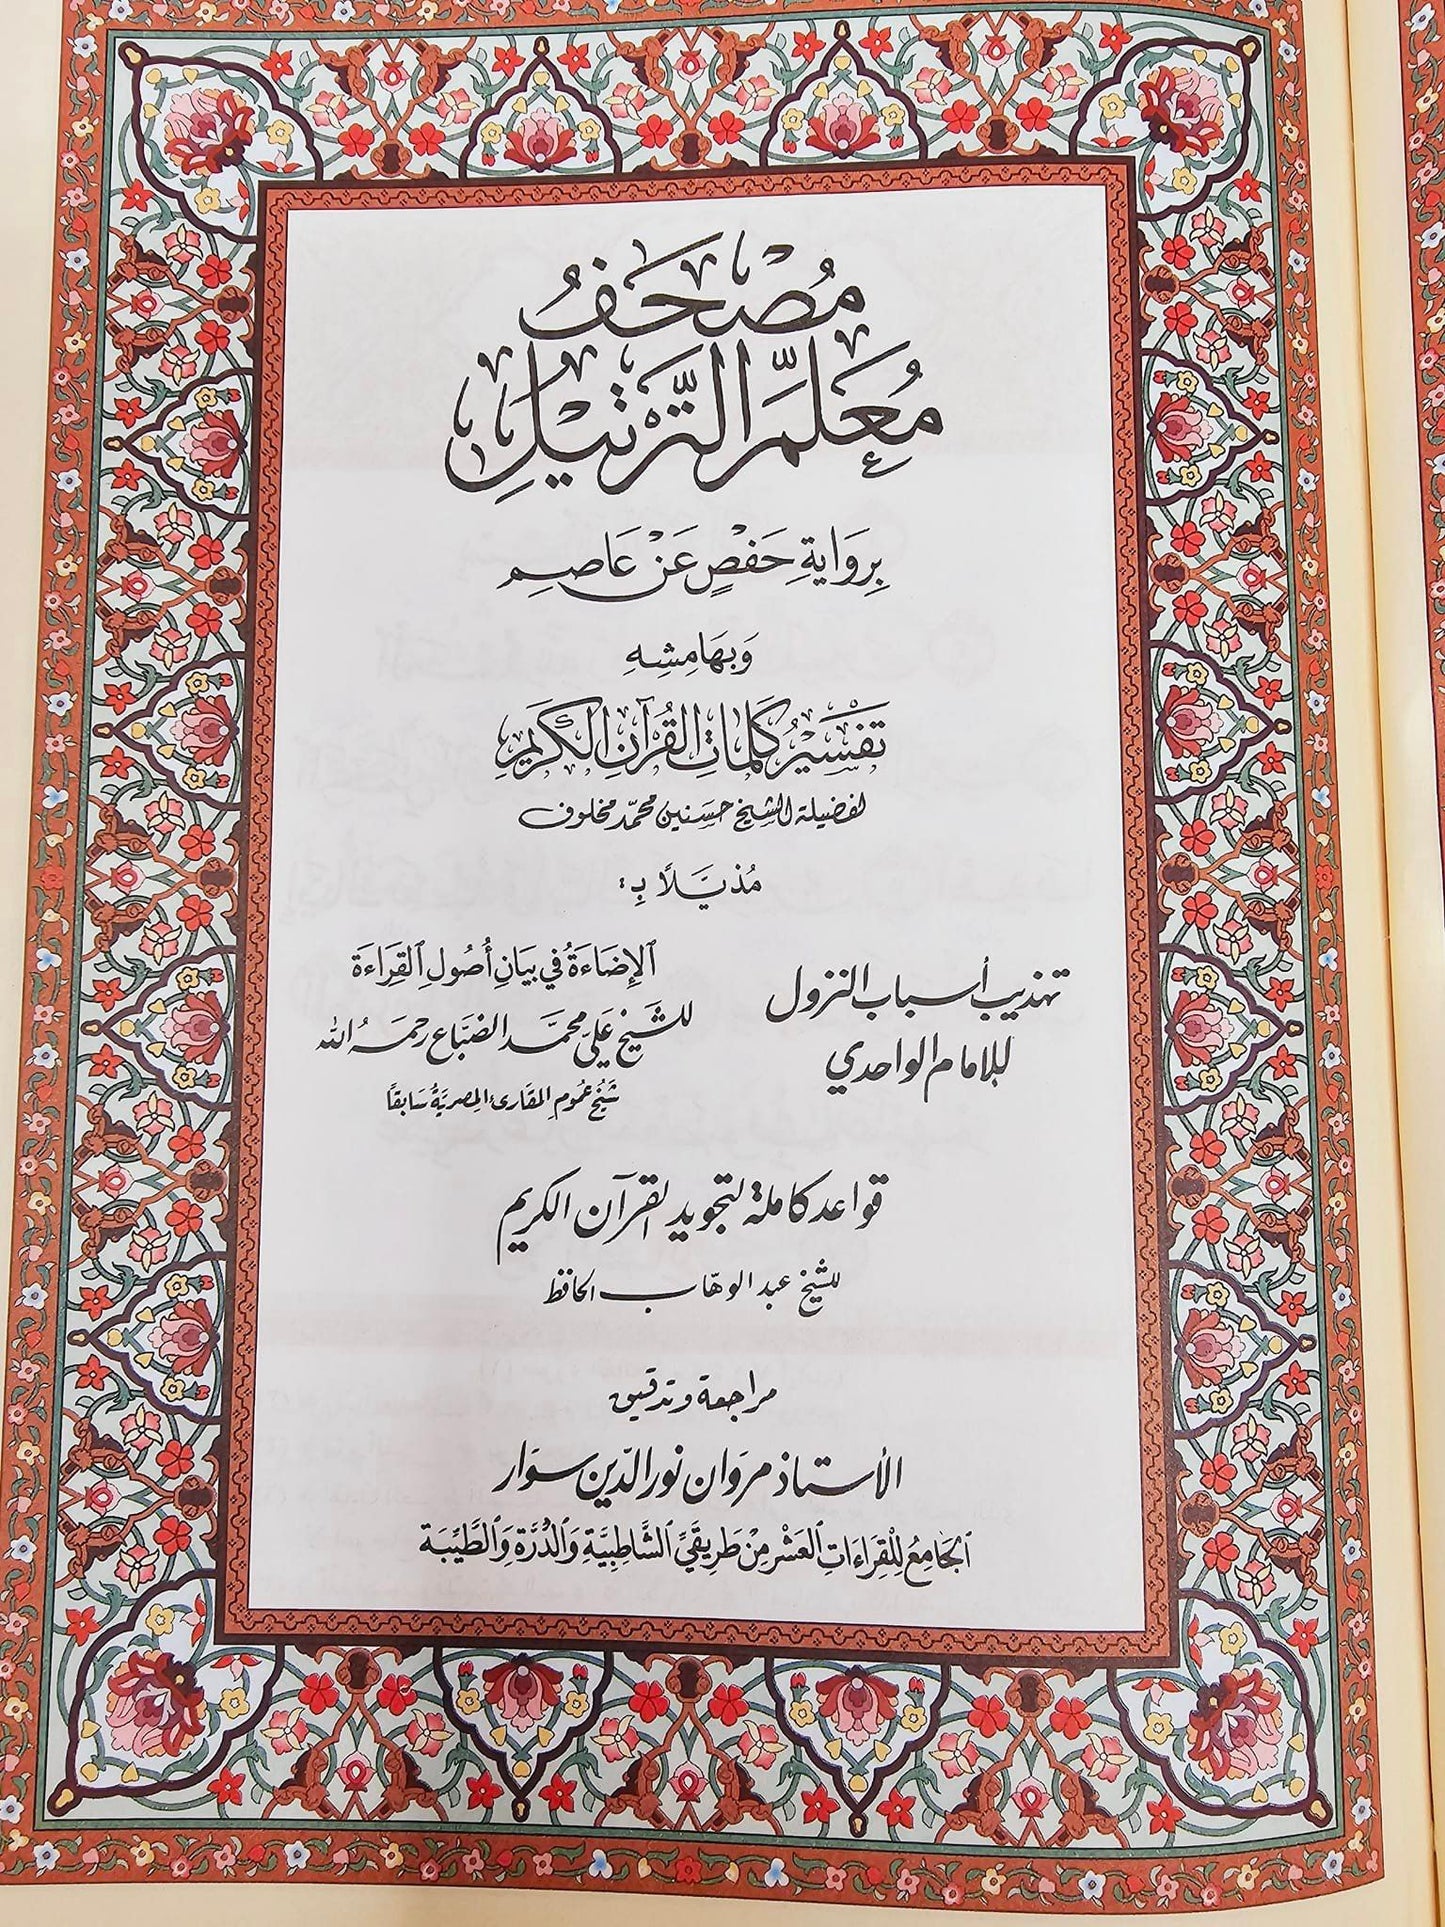 مُصْحَفُ
مُعَلِّمِ التَّرْتِيْلِ
بِرِوَايَةِ حَفْصٍ عَنْ عَاصِمٍ
وَبِهَامِشِهِ
تَفْسِيْرُ كَلِمَاتِ القُرْآنِ الكَرِيْمِ
لفضيلة الشيخ حسَنين محمّد مخلوف
مُذيَّلاً بِ:
تهذيب أسباب النزول
للامام الواحدي
ٱلإِضَاءَةُ في بيَانِ أُصُولِ ٱلقِرَاءَةِ
للشَّيخ عَليّ محمَّد الضبَّاع رحمَهُ الله
شَيْخ عمُوم المقَارئ المِصريَّة سَابقاً
قواعد كاملة لتجويد القرآن الكريم
للشيخ عبد الوهّاب الحافظ
مراجعة وتدقيق
الأستاذ مروان نور الدّين سوار
ٱلجَامِعُ لِلْقِرَاءَاتِ ٱلعَشْرِ مِنْ طَرِيقَيِّ ٱلشَّاطِبِيَّةِ وَٱلدُّرَّةِ وَٱلطَّيِّبَة